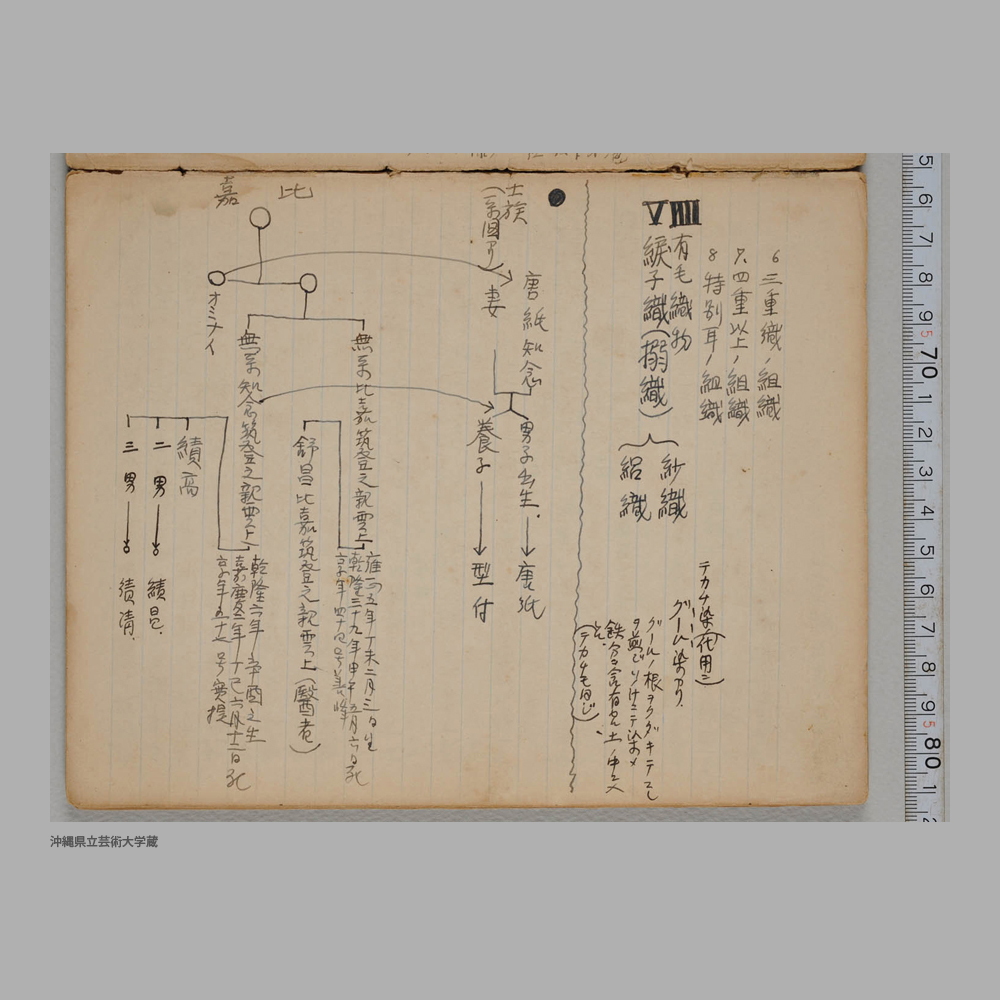 6 三重織ノ組織
7. 四重以上ノ組織
8 特別耳ノ組織
VIIII
有毛織物
綟子織(搦織)
紗織
絽織
テカチ染(代用ニ)
グール染アリ.
グールノ根ヲクダキテコレ
ヲ煎ジツケニテ染メ
鉄分含有ノ土ノ中ニ入
(テカチモ同ジ)
士族
(系図アリ)
妻
唐紙知念
男子出生.
唐紙
養子
型付
比
嘉
オミナイ
無系比嘉筑登之親雲上
雍正五年丁未二月三日生
乾隆三十九年甲午五月六日死
享年四十 号善峰
舒昌比嘉筑登之親雲上(醫者)
無系知念筑登之親雲上
乾隆六年辛酉之生
嘉慶二年丁巳六月十二日死
享年五十 号実提
績高
二男
績昌.
三男
績清.
5 6 7 8 9 5 70 1 2 3 4 5 6 7 8 9 5 80 1 2
沖縄県立芸術大学蔵